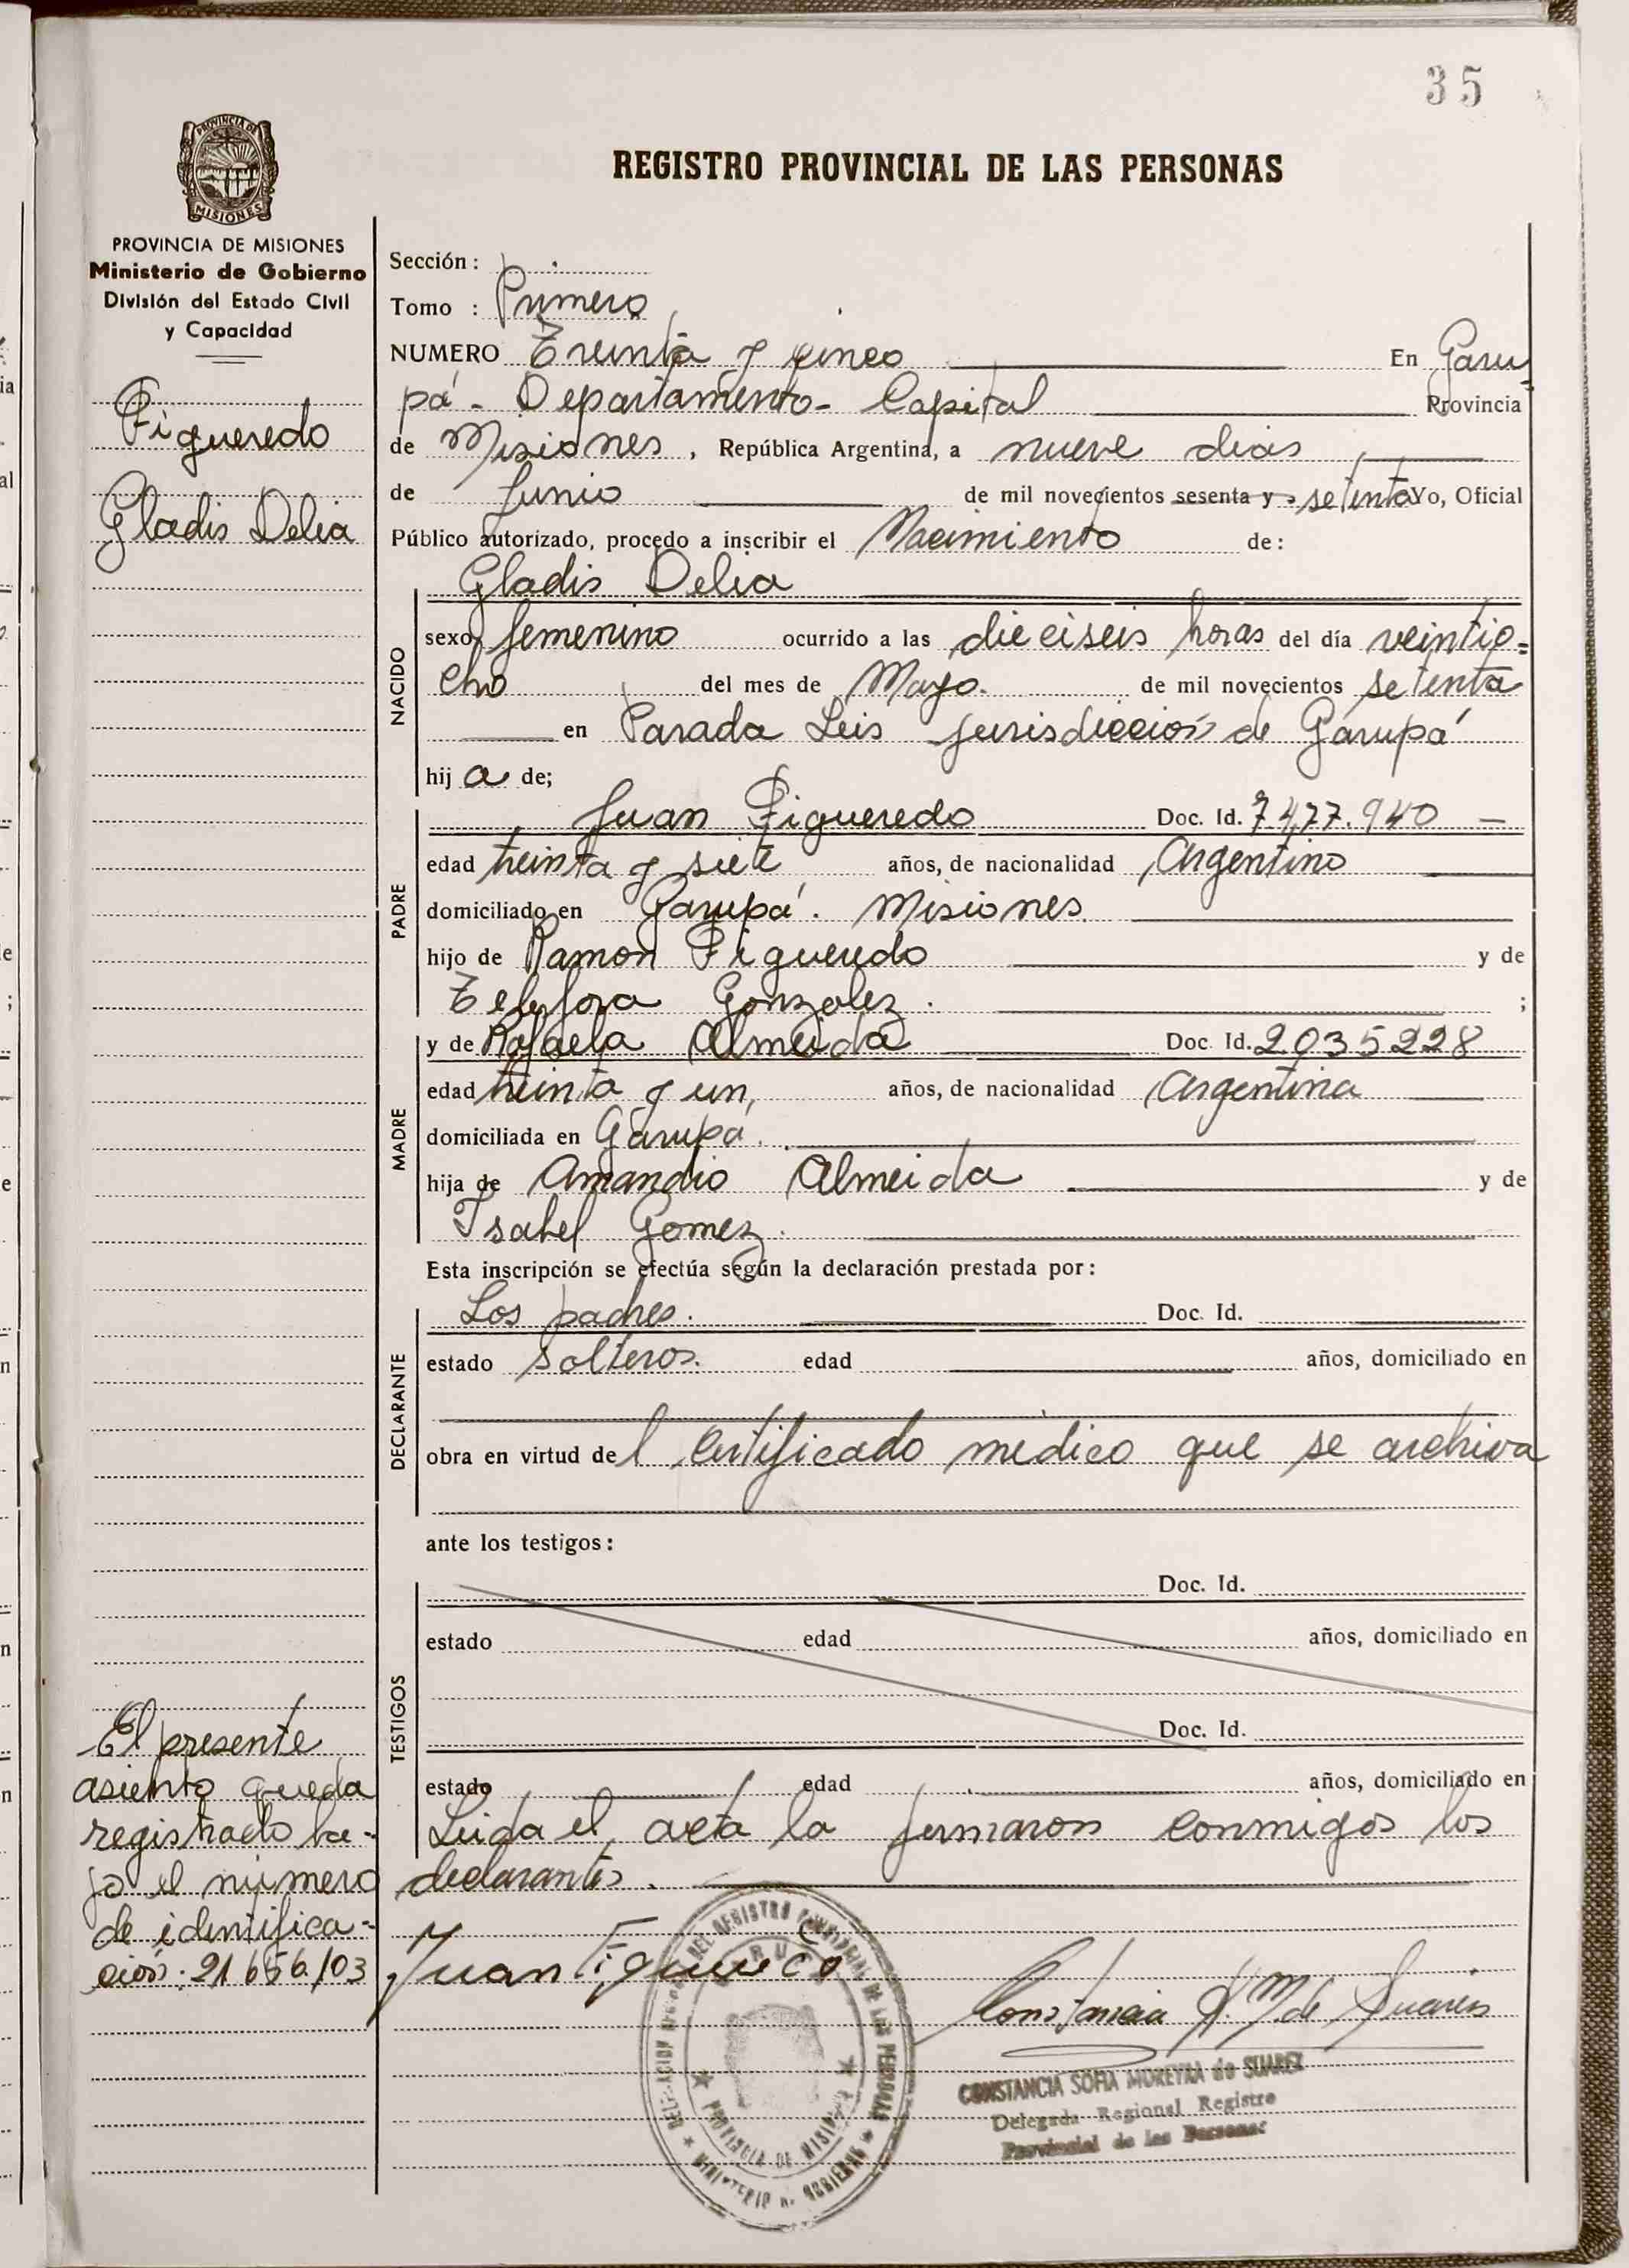 35
PROVINCIA DE
MISIONES
REGISTRO PROVINCIAL DE LAS PERSONAS
PROVINCIA DE MISIONES
Ministerio de Gobierno
División del Estado Civil
y Capacidad
Figueredo
Gladis Delia
Sección:
Tomo : Primero
NUMERO Treinta y cinco En Garu=
pá - Departamento - Capital Provincia
de Misiones, República Argentina, a nueve dias
de Junio de mil novecientos sesenta y setenta Yo, Oficial
Público autorizado, procedo a inscribir el Nacimiento de:
Gladis Delia
NACIDO
sexo femenino ocurrido a las dieciseis horas del día veintio=
cho del mes de Mayo. de mil novecientos setenta
en Parada Leis jurisdicción de Garupá
hij a de;
PADRE
Juan Figueredo Doc. Id. 7.477.940 —
edad treinta y siete años, de nacionalidad Argentino
domiciliado en Garupá. Misiones
hijo de Ramon Figueredo y de
Gonzalez. ;
MADRE
y de Rafaela Almeida Doc. Id. 2035228
edad treinta y un, años, de nacionalidad Argentina
domiciliada en Garupá.
hija de Amandio Almeida y de
Isabel Gomez.
Esta inscripción se efectúa según la declaración prestada por:
DECLARANTE
Los padres. Doc. Id.
estado solteros. edad años, domiciliado en
obra en virtud de l certificado médico que se archiva
ante los testigos:
TESTIGOS
Doc. Id.
estado edad años, domiciliado en
Doc. Id.
estado edad años, domiciliado en
Leida el acta la firmaron conmigos los
declarantes.
El presente
asiento queda
registrado ba-
jo el número
de identifica-
ción: 21.656.103
Juan
Constancia S. M. de Suarez
CONSTANCIA SOFIA MOREYRA de SUAREZ
Delegada Regional Registro
Provincial de las Personas
DEL REGISTRO PROVINCIAL DE LAS PERSONAS
PROVINCIA DE MISIONES
MINISTERIO DE GOBIERNO